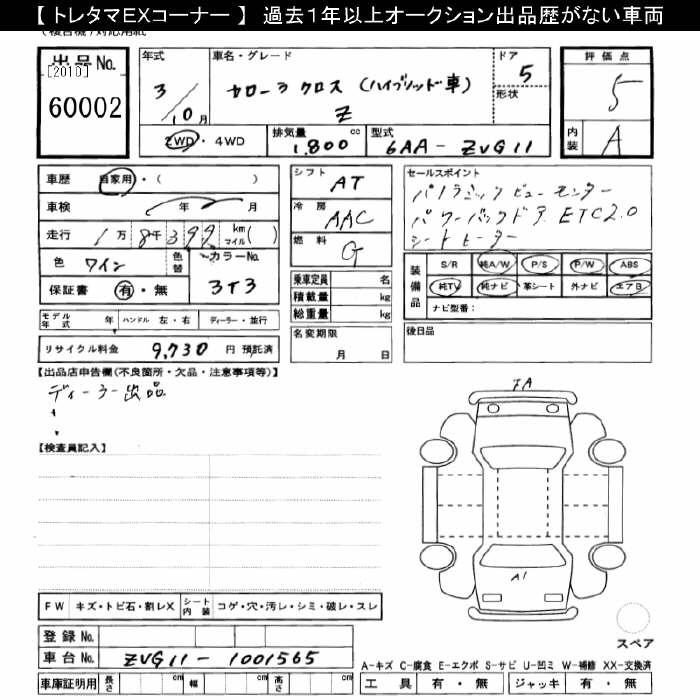 【 トレタマＥＸコーナー 】 過去１年以上オークション出品歴がない車両
出品No.
[2010]
60002
年式
3/10月
車名・グレード
カローラ クロス (ハイブリッド車)
Z
ドア
5
形状
評価点
5
内装
A
2WD・4WD
排気量
1,800 cc
型式
6AA - ZVG11
車歴 自家用・( )
車検 年 月
走行 1万8千399 km マイル( )
色 ワイン 色替
カラーNo. 3T3
保証書 有・無
シフト AT
冷房 AAC
燃料 G
乗車定員 名
積載量 kg
総重量 kg
名変期限
月 日
セールスポイント
パノラミックビューモニター
パワーバックドア ETC2.0
シートヒーター
装備品
S/R 純A/W P/S P/W ABS
純TV 純ナビ 革シート 外ナビ エアB
ナビ型番:
後日品
モデル年式 年 ハンドル 左・右 ディーラー・並行
リサイクル料金 9,730 円 預託済
【出品店申告欄(不良箇所・欠品・注意事項等)】
ディーラー出品
【検査員記入】
FA
A1
スペア
FW キズ・トビ石・割レX シート内装 コゲ・穴・汚レ・シミ・破レ・スレ
登録No.
車台No. ZVG11-1001565
車庫証明用 長さ cm 幅 cm 高さ cm
A-キズ C-腐食 E-エクボ S-サビ U-凹ミ W-補修 XX-交換済
工具 有・無 ジャッキ 有・無